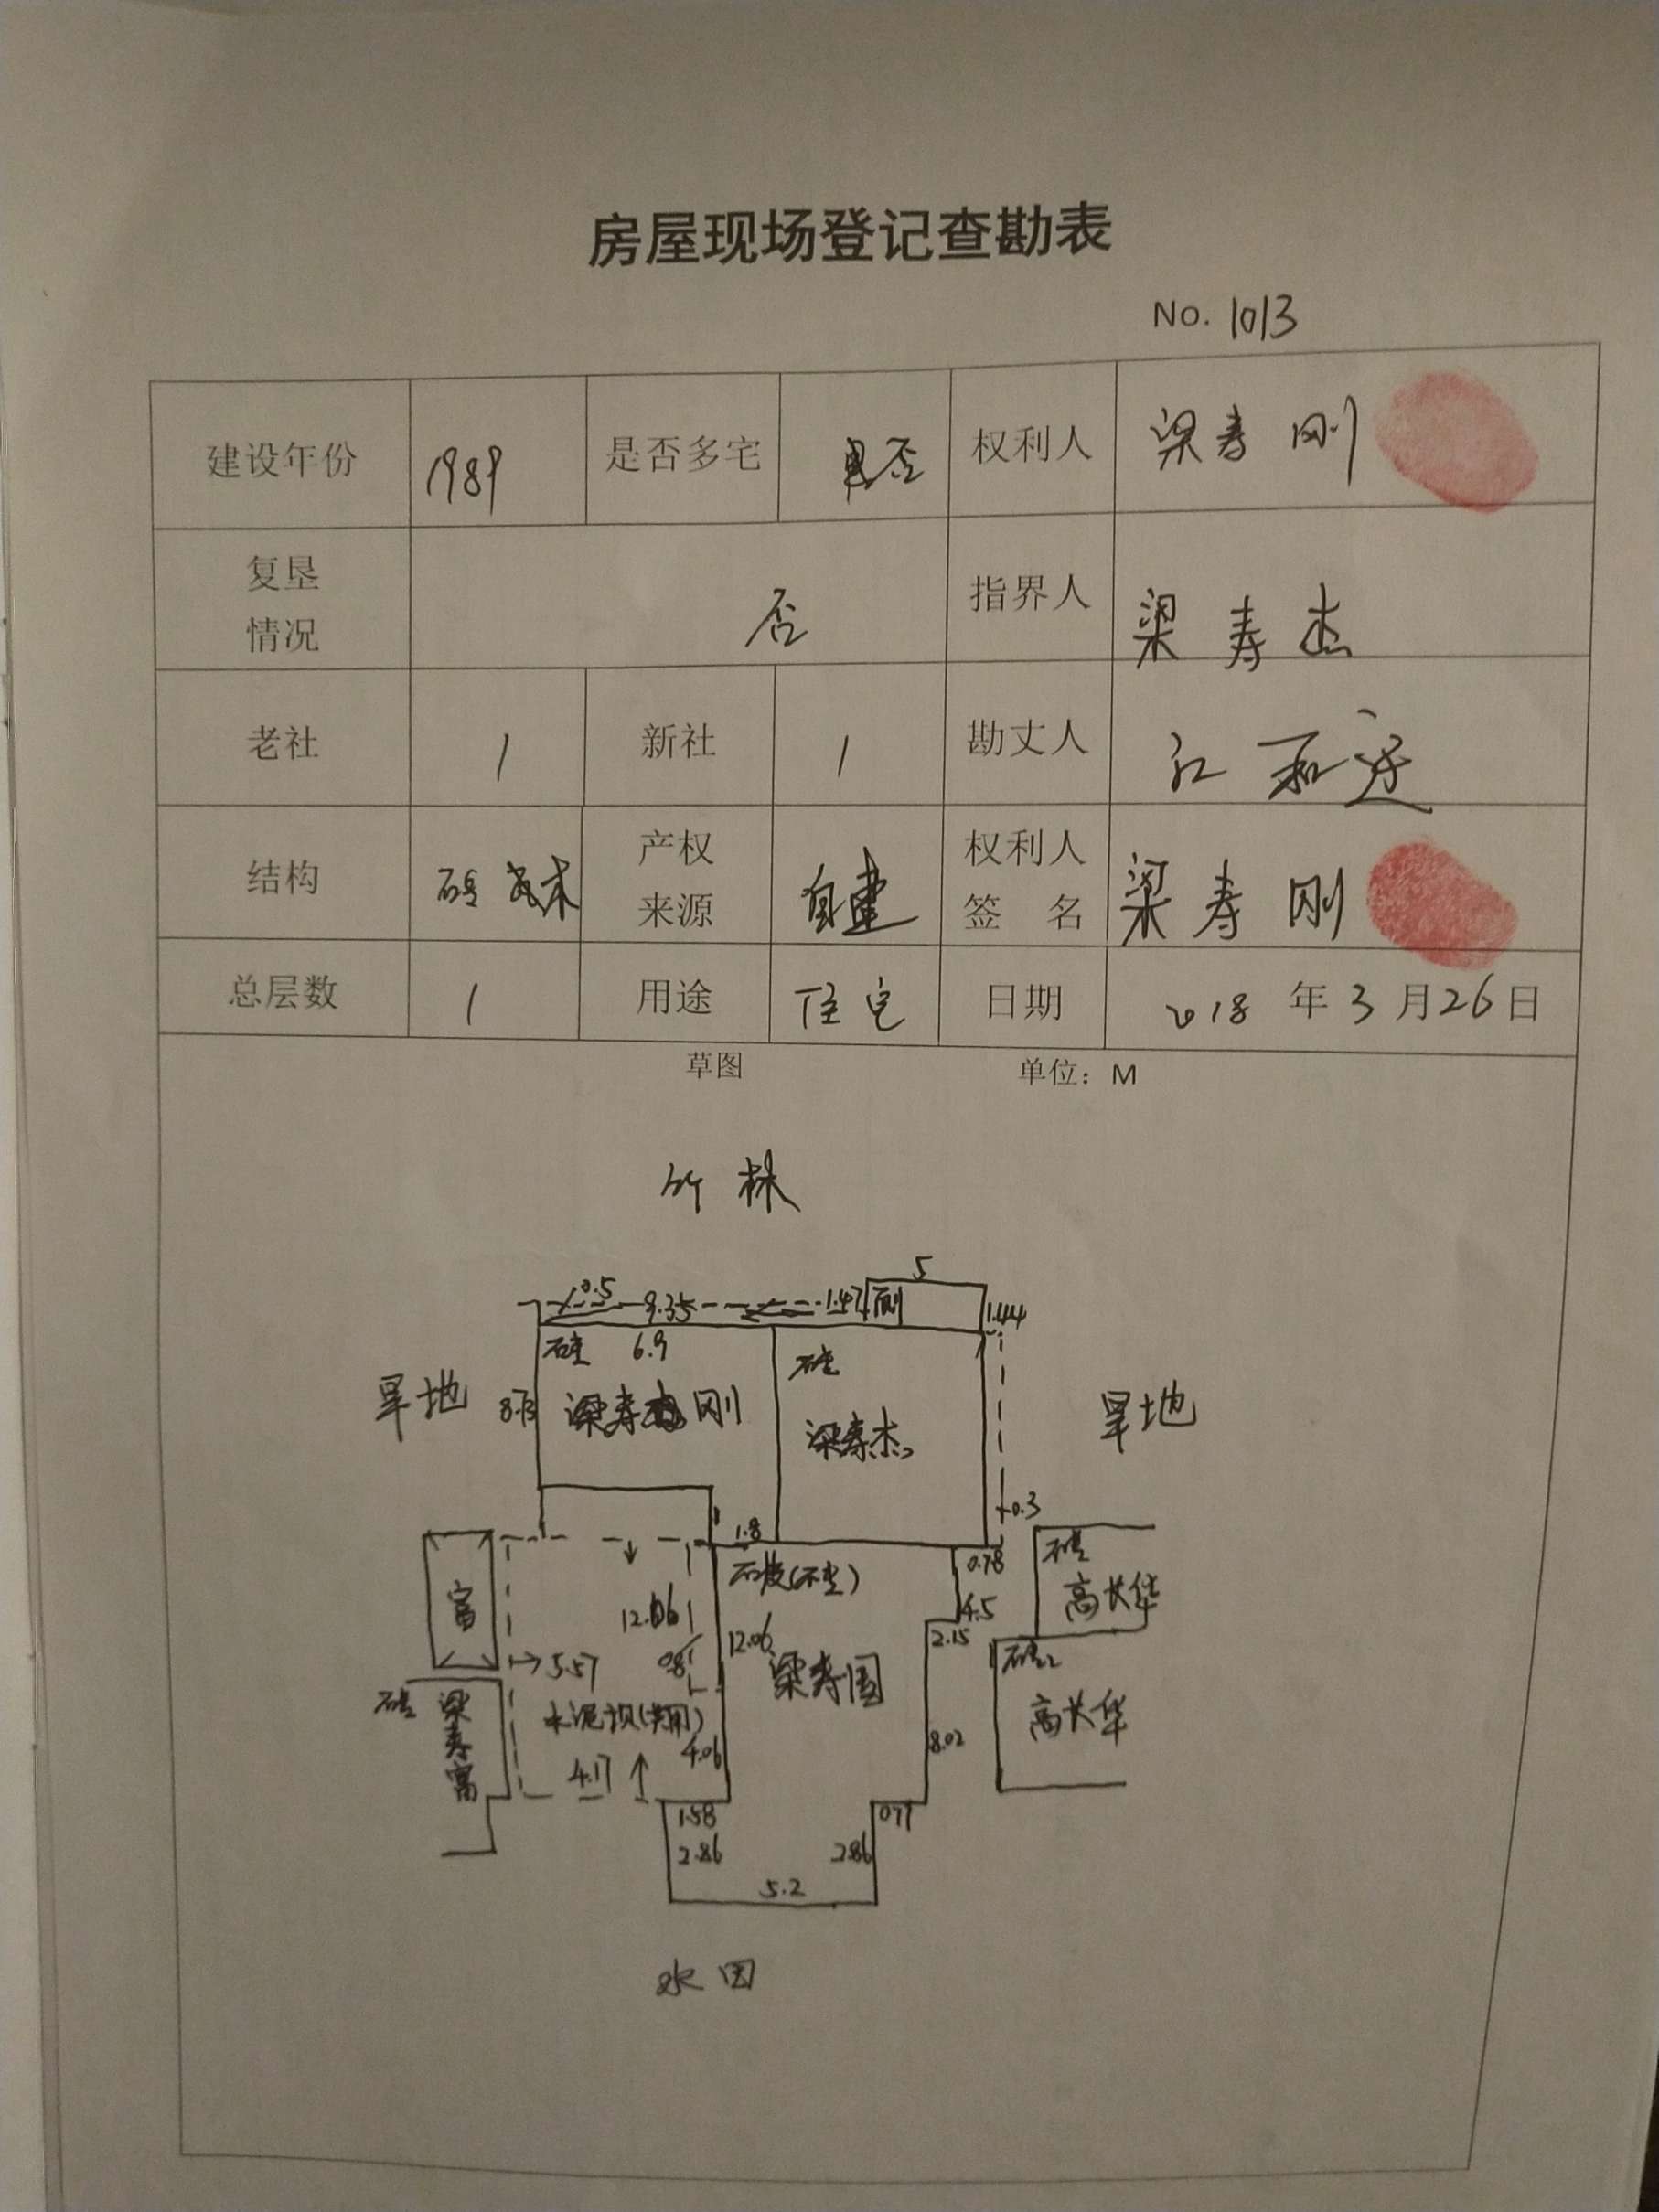 房屋现场登记查勘表
No. 1013
建设年份 1989 是否多宅 否 权利人 梁寿刚
复垦情况 否 指界人 梁寿杰
老社 1 新社 1 勘丈人 江
结构 砖木 产权来源 自建 权利人签名 梁寿刚
总层数 1 用途 住宅 日期 2018 年 3 月 26 日
草图 单位：M
竹林
5
0.5 9.35 1.47 厕 1.44
砖 6.9 砖
旱地 梁寿刚 梁寿杰 旱地
0.3
1.8 0.78 砖
富 12.06 高长华
4.5
12.06 2.15
0.8 砖
5.57 梁寿国
砖 梁寿富 水泥坝(共用) 高长华
4.06 8.02
4.17
1.58 0.77
2.86 2.86
5.2
水田